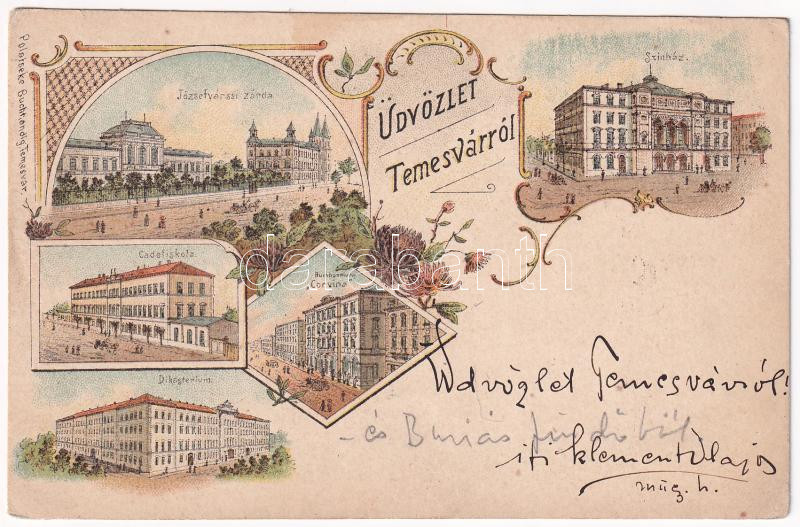 Polatsek's Buchhandlg. Temesvár.
Józsefvárosi zárda.
ÜDVÖZLET
Temesvárról
Színház.
Cadetiskola.
Corvina
Dikasterium.
darabanth
Üdvözlet Temesvárról!
- és Buziás fürdőből
ifj Klement Lajos